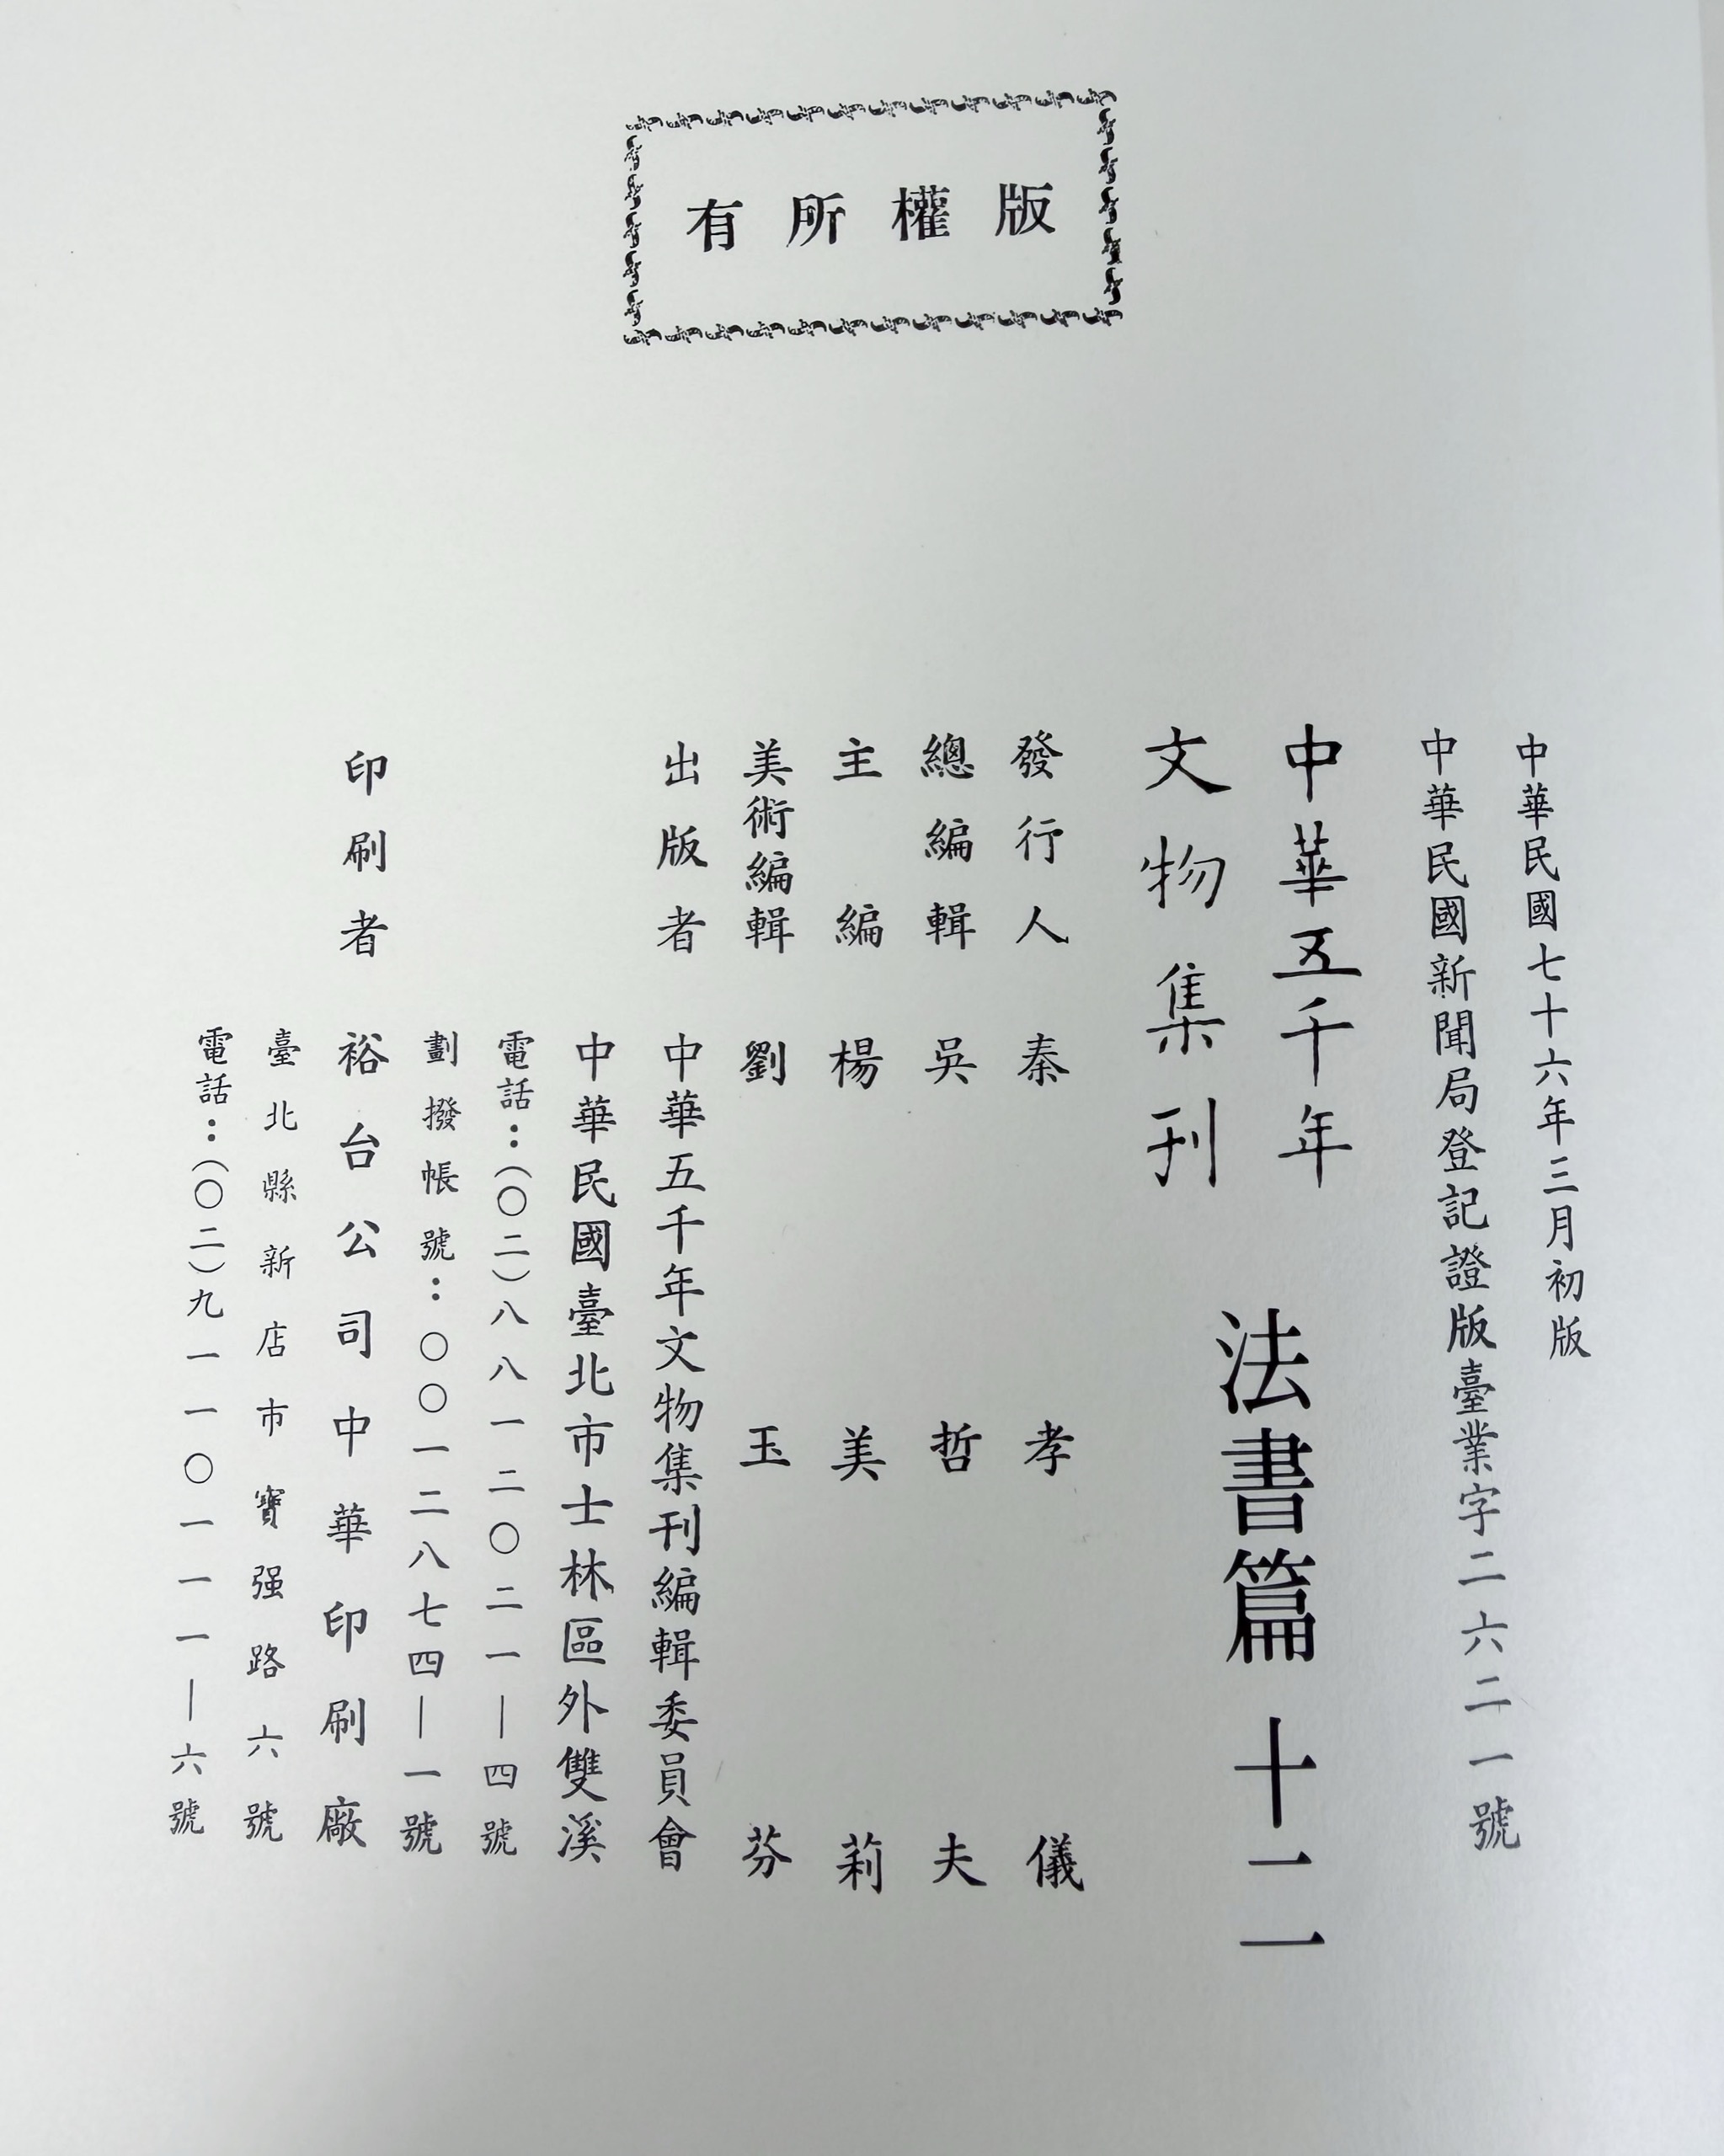 版權所有
中華民國七十六年三月初版
中華民國新聞局登記證版臺業字二六二一號
中華五千年
文物集刊
法書篇 十二
發行人 秦孝儀
總編輯 吳哲夫
主編 楊美莉
美術編輯 劉玉芬
出版者 中華五千年文物集刊編輯委員會
中華民國臺北市士林區外雙溪
電話：(〇二)八八一二〇二一—四號
劃撥帳號：〇〇一二八七四—一號
印刷者 裕台公司中華印刷廠
臺北縣新店市寶强路六號
電話：(〇二)九一一〇一一一—六號